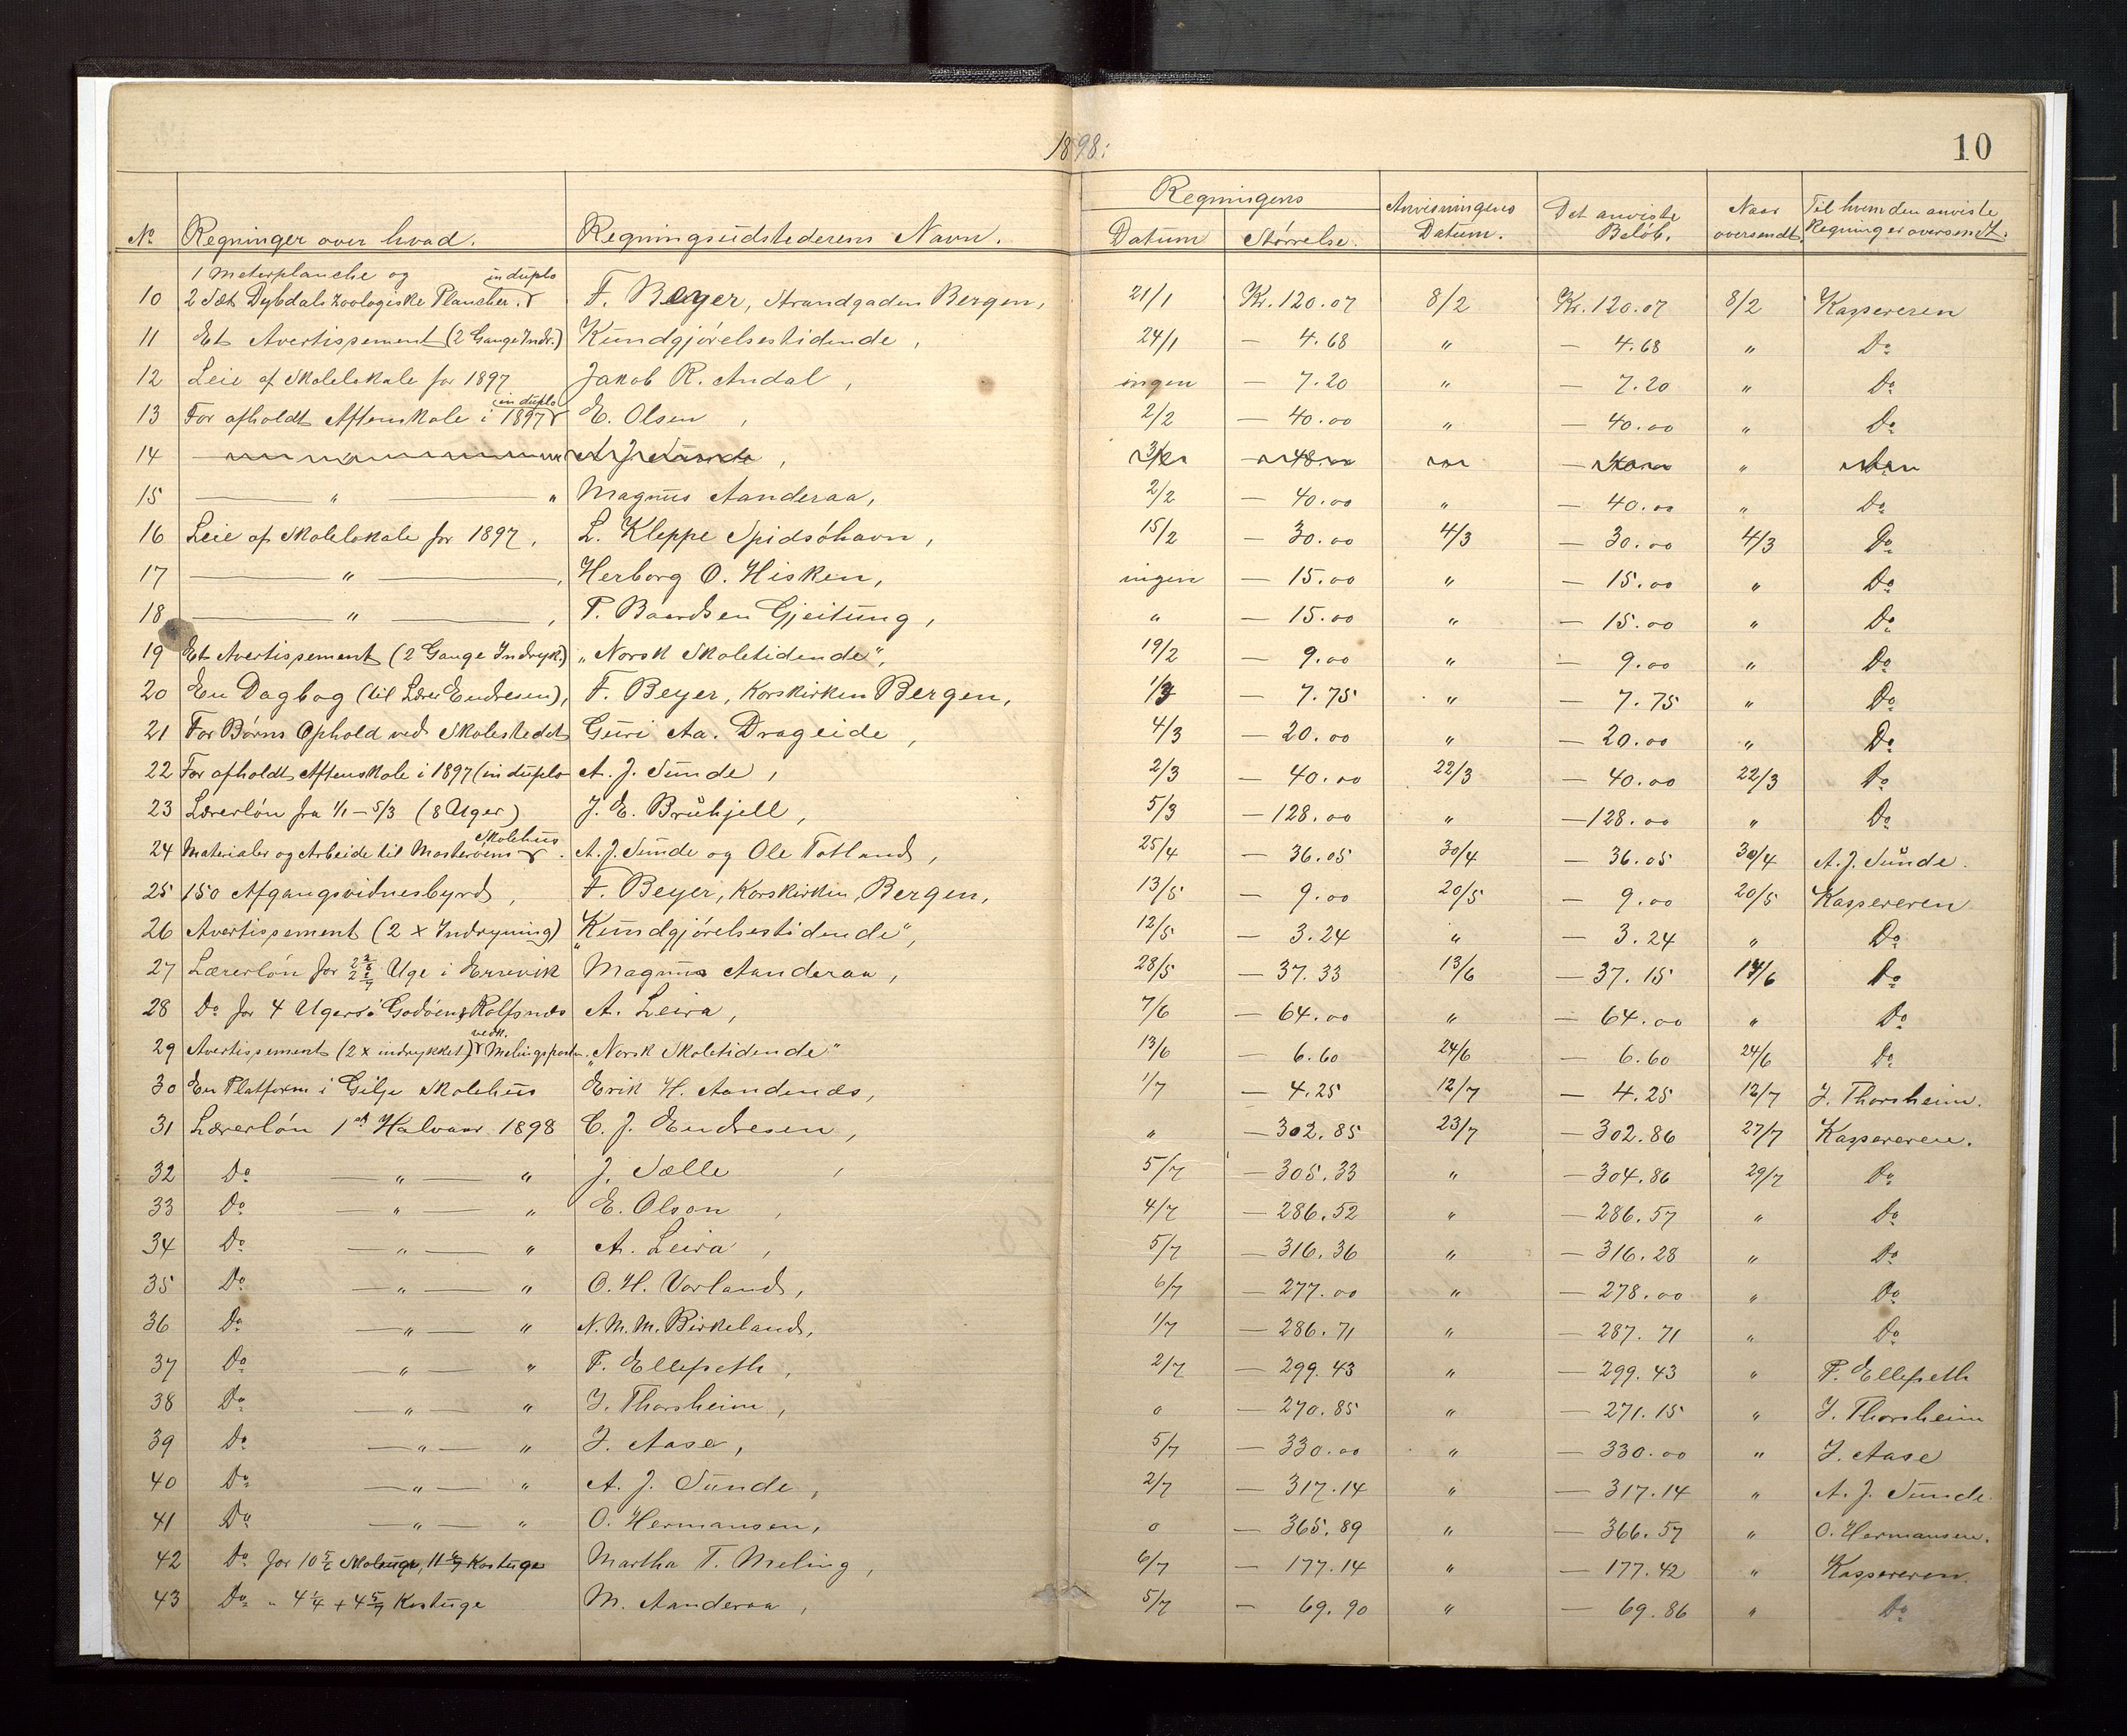 1898:
10
Regningens
No Regninger over hvad. Regningsudstederens Navn. Datum Størrelse. Anvisningens Datum. Det anviste Beløb. Naar oversendt. Til hvem den anviste Regning er oversendt.
1 Meterplanche og in duplo
10 2 Sæt Dybdals Zoologiske Plancher. F. Beyer, Strandgaden Bergen, 21/1 Kr. 120.07 8/2 Kr. 120.07 8/2 Kassereren
11 Et Avertissement (2 Gange Indr.) Kundgjørelsestidende, 24/1 — 4.68 " — 4.68 " Do
12 Leie af Skolelokale for 1897 Jakob R. Andal, ingen — 7.20 " — 7.20 " Do
13 For afholdt Aftenskole i 1897 in duplo E. Olsen, 2/2 — 40.00 " — 40.00 " Do
14 — " A. J. Sunde, — " Do
15 — " — " Magnus Aanderaa, 2/2 — 40.00 " — 40.00 " Do
16 Leie af Skolelokale for 1897. L. Kleppe Spidsøhavn, 15/2 — 30.00 4/3 — 30.00 4/3 Do
17 — " —, Herborg O. Hisken, ingen — 15.00 " — 15.00 " Do
18 — " —, T. Baardsen Gjeitung, " — 15.00 " — 15.00 " Do
19 Et Avertissement (2 Gange Indryk.) "Norsk Skoletidende", 19/2 — 9.00 " — 9.00 " Do
20 En Dagbog (til Lærer Endresen), F. Beyer, Korskirken Bergen, 1/3 — 7.75 " — 7.75 " Do
21 For Børns Ophold ved Skolestedet Guri Aa. Drageide, 4/3 — 20.00 " — 20.00 " Do
22 For afholdt Aftenskole i 1897 (in duplo A. J. Sunde, 2/3 — 40.00 22/3 — 40.00 22/3 Do
23 Lærerløn fra 1/1 – 5/3 (8 Uger) J. E. Bruhjell, 5/3 — 128.00 " — 128.00 " Do
24 Materialer og Arbeide til Mosterøens Skolehus. A. J. Sunde og Ole Totland, 25/4 — 36.05 30/4 — 36.05 30/4 A. J. Sunde.
25 150 Afgangsvidnesbyrd, F. Beyer, Korskirken, Bergen, 13/5 — 9.00 20/5 — 9.00 20/5 Kassereren
26 Avertissement (2 x Indrykning) "Kundgjørelsestidende", 12/5 — 3.24 " — 3.24 " Do
27 Lærerløn for Uge i Ersevik Magnus Aanderaa, 28/5 — 37.33 13/6 — 37.15 14/6 Do
28 Do for 4 Uger i Godøen & Rolfsnes A. Leira, 7/6 — 64.00 " — 64.00 " Do
29 Avertissement (2 x indrykket) vedk. Melingsposten. "Norsk Skoletidende" 13/6 — 6.60 24/6 — 6.60 24/6 Do
30 En Platform i Gilje Skolehus Erik H. Aandenes, 1/7 — 4.25 12/7 — 4.25 12/7 J. Thorsheim.
31 Lærerløn 1ste Halvaar 1898 C. J. Endresen, " — 302.85 23/7 — 302.86 27/7 Kassereren.
32 Do — " — " J. Sælle, 5/7 — 305.33 " — 304.86 29/7 Do
33 Do — " — " E. Olson, 4/7 — 286.52 " — 286.57 " Do
34 Do — " — " A. Leira, 5/7 — 316.36 " — 316.28 " Do
35 Do — " — " O. H. Vorland, 6/7 — 277.00 " — 278.00 " Do
36 Do — " — " N. M. M. Birkeland, 1/7 — 286.71 " — 287.71 " Do
37 Do — " — " T. Ellefseth, 2/7 — 299.43 " — 299.43 " T. Ellefseth
38 Do — " — " J. Thorsheim, o — 270.85 " — 271.15 " J. Thorsheim
39 Do — " — " J. Aase, 5/7 — 330.00 " — 330.00 " J. Aase
40 Do — " — " A. J. Sunde, 2/7 — 317.14 " — 317.14 " A. J. Sunde.
41 Do — " — " O. Hermansen, o — 365.89 " — 366.57 " O. Hermansen.
42 Do for 10 5/6 Skoleuge, 11 6/7 Kostuge Martha T. Meling, 6/7 — 177.14 " — 177.42 " Kassereren.
43 Do " 4 1/4 + 4 5/7 Kostuge M. Aanderaa, 5/7 — 69.90 " — 69.86 " Do